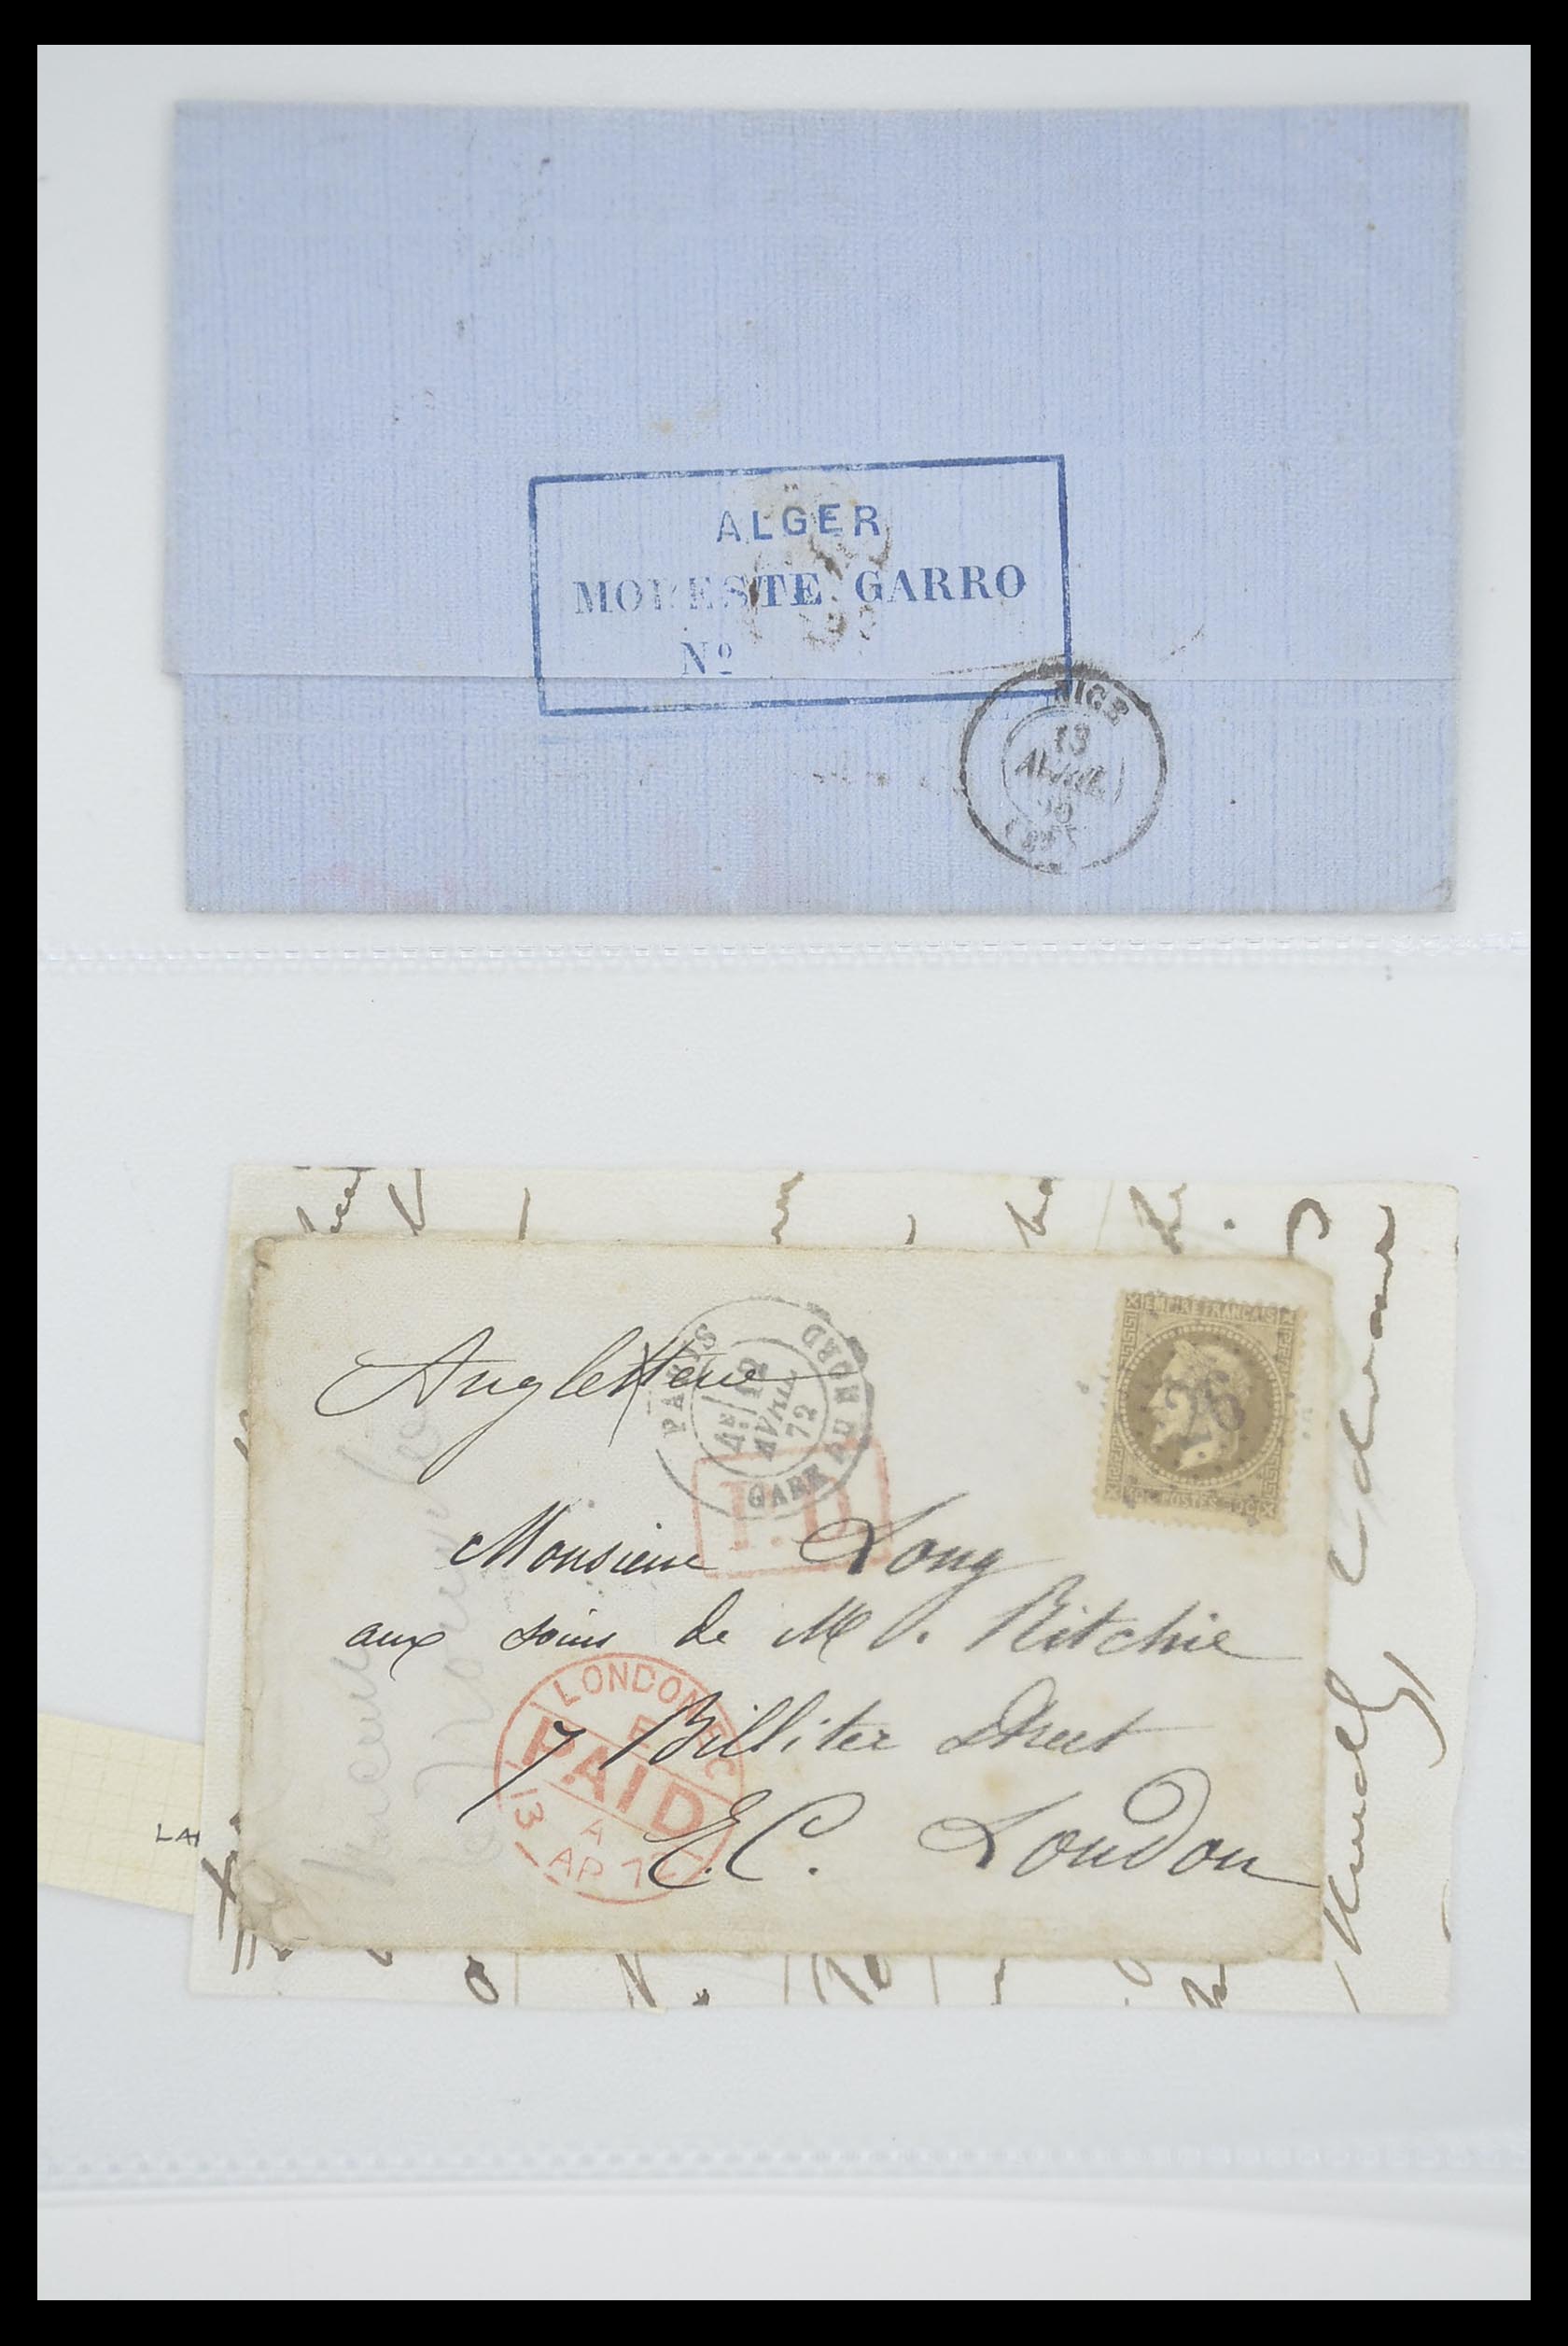 ALGER
MODESTE GARRO
Nº
NICE
13
AVRIL
Angleterre
PARIS
GARE DU NORD
4E
12
AVRIL
72
P.D.
EMPIRE FRANÇAIS
26
30 C POSTES 30 C
Monsieur Long
aux soins de M P. Ritchie
7 Billiter Street
E.C. London
LONDON EC
PAID
13
A
AP 72
LA